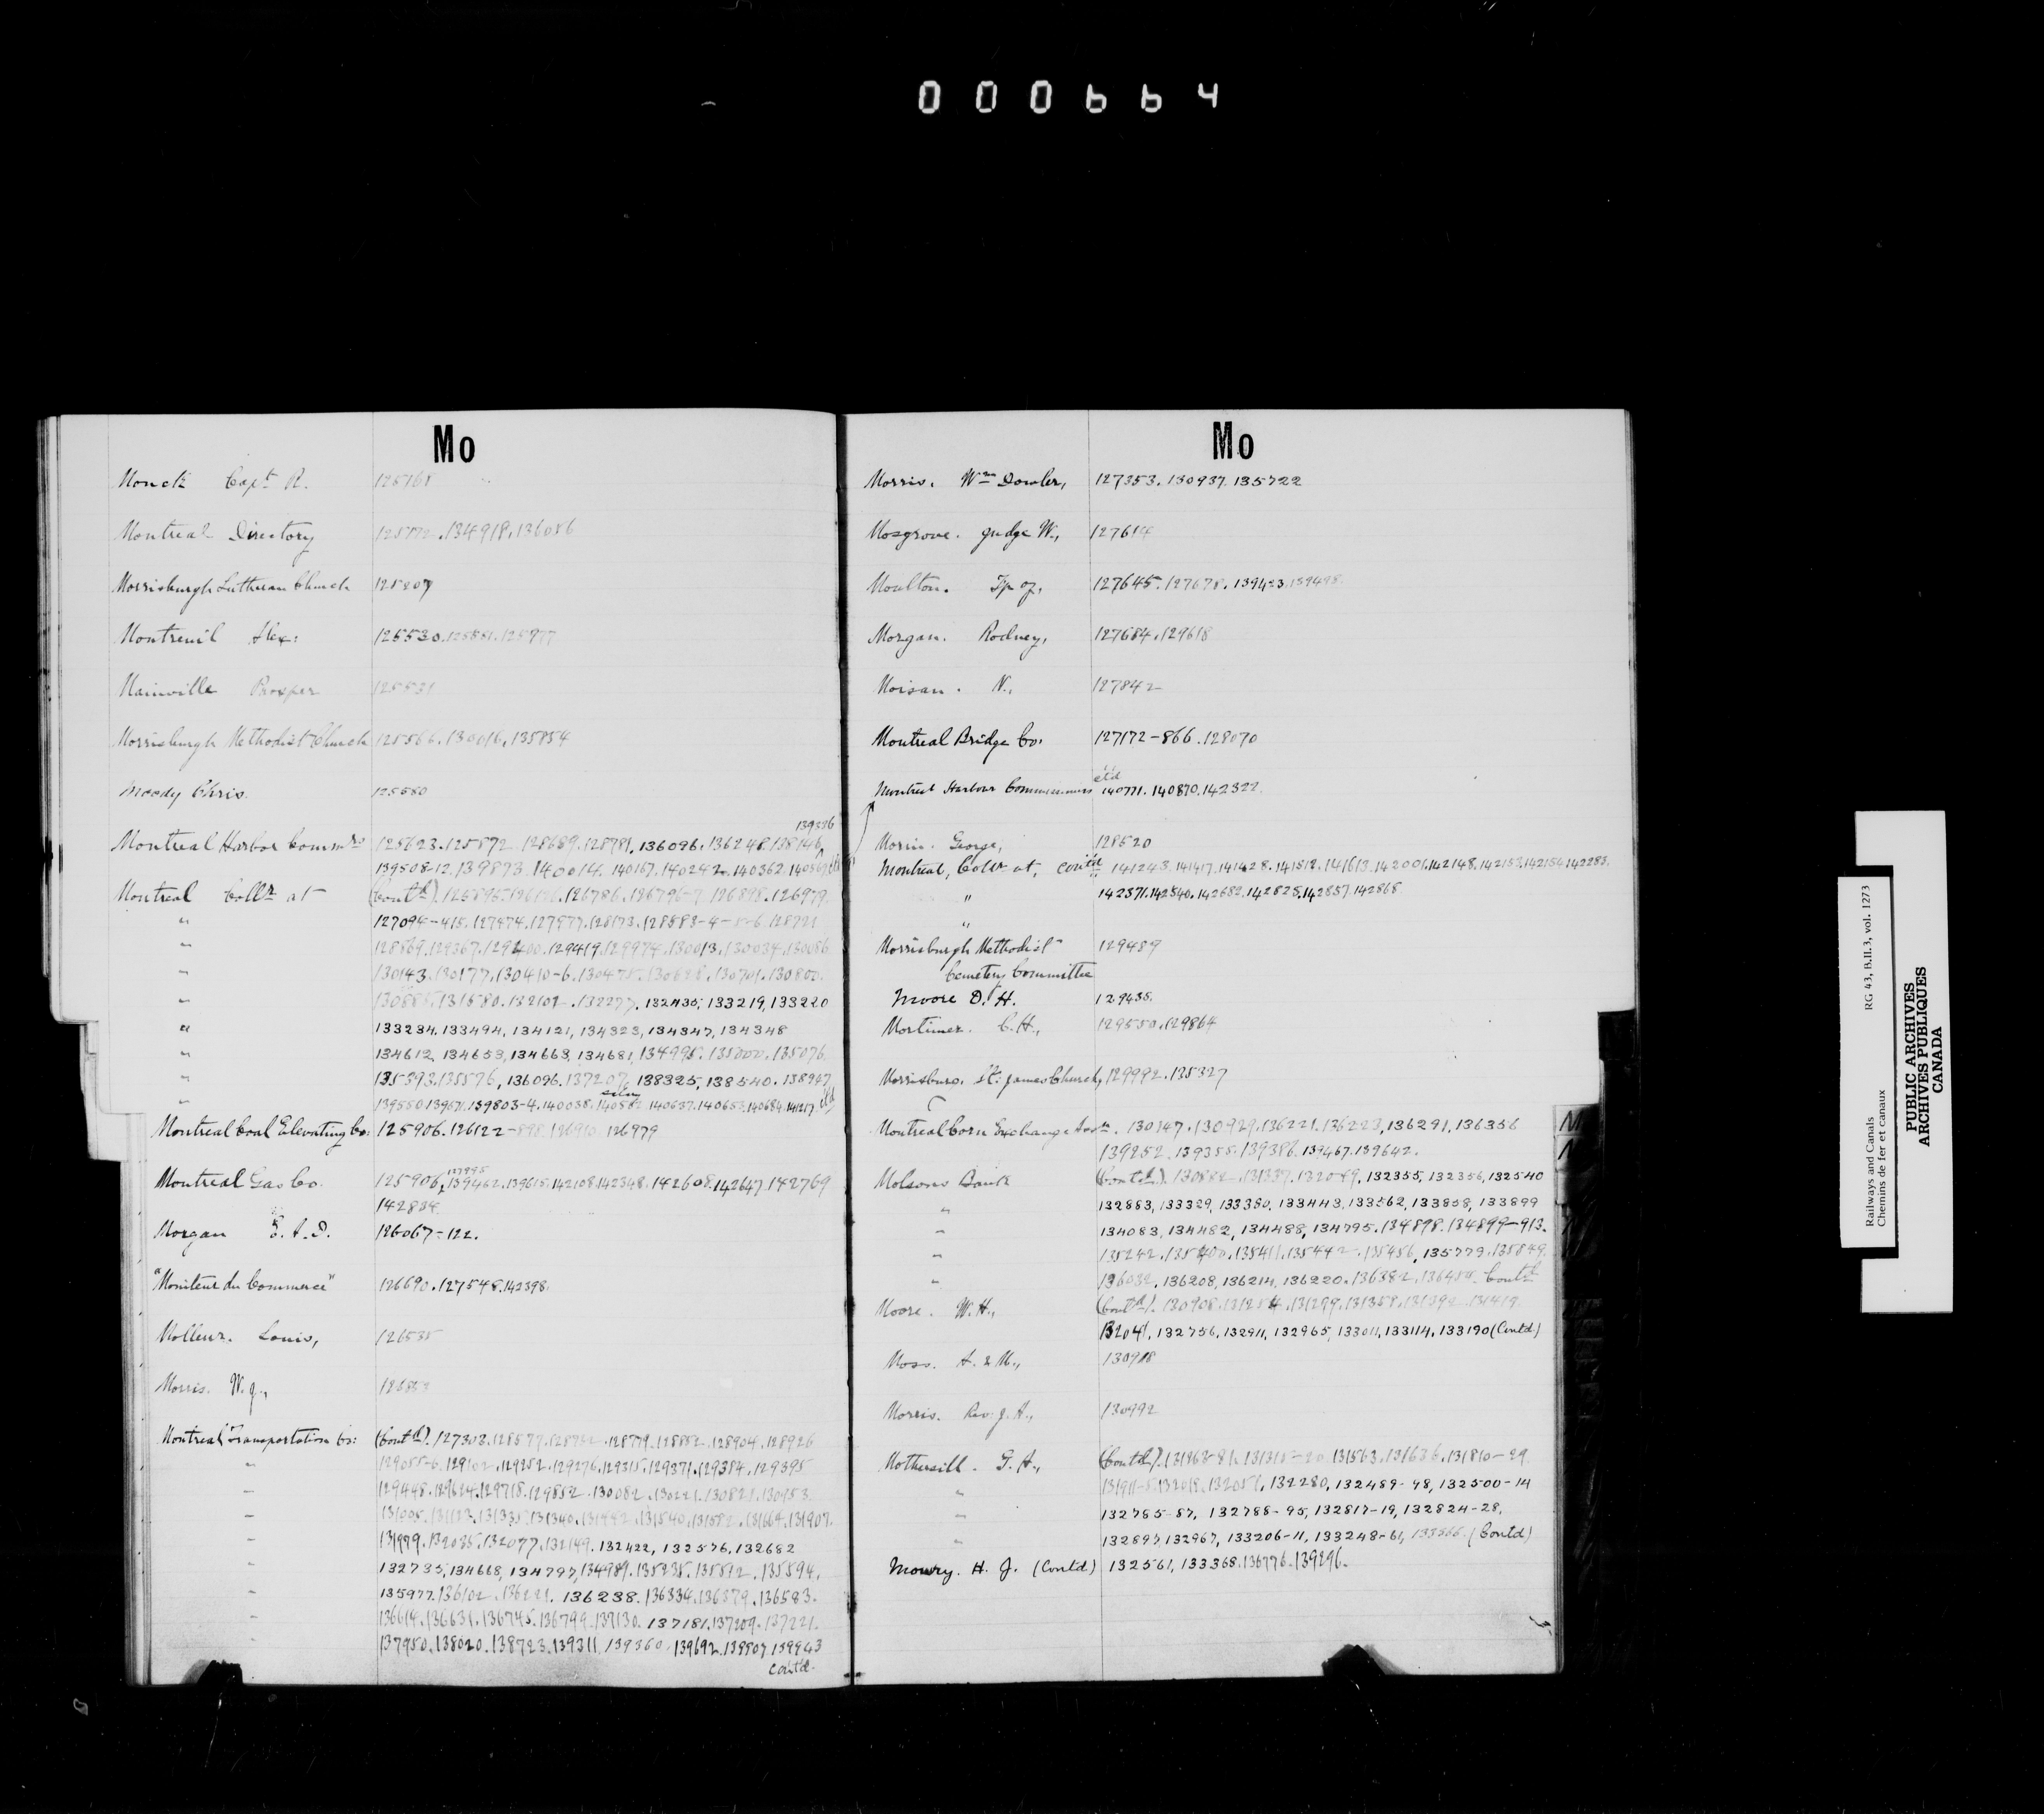 000664
Mo
Monck Capt. R. 125768
Montreal Directory 125772.134918.136086
Morrisburgh Lutheran Church 125807
Montreuil Alex: 125530.125551.125977
Mainville Prosper 125531
Morrisburgh Methodist Church 125566.130016,135854
Moody Chris. 125580
139336
Montreal Harbor Commrs 125623.125872.128689.128781,136096.136248.138146
139508-12.139873.140014.140167.140242.140362.
Montreal Collr at (Contd).126786.126796-7.126898.126979
" 127094-415.127474.127977.128173.128583-4-5-6.128721
" 128869.129367.129400.129419.129974.130013.130034.130086
" 130143.130177.130410-6.130701.130800.
" 132435,133219,133220
" 133234.133494,134121,134323,134347,134348
" 134612,134653,134663,134681,134995.135000.135076
" 135393.135576,136096.137207.138325,138540.138947
" 139550.139803-4.140038.140637.140653.140684.141217.
Montreal Coal Elevating Co: 125906.126122-898.126910.126979
Montreal Gas Co. 125906.139462.139615.142108.142348.142608.142647.142769
142804.
Morgan E. A. D. 126067-122.
"Moniteur du Commerce" 126690.127548.142398.
Molleur. Louis, 126535
Morris. W. J.,
Montreal Transportation Co: (Contd).127303.128577.128779.128882.128904.128926
" 129055-6.129102.129252.129276.129315.129371.129384.129395
" 129448.129624.129718.129852.130082.130221.130821.130953.
" 131340.131540.131582.131664.131907.
131999.132035.132077.132149.132422,132576,132682
132735,134668,134797,134989.135235.135512.135594.
135977.136102.136221.136238.136334.136379.136583.
" 136614.136631.136745.136799.137130.137181.137209.137221.
" 137950.138020.138723.139311.139360.139692.139807.139943
Contd.
Mo
Morris. Wm Dowler, 127353.130937.135722
Mosgrove. Judge W., 127614
Moulton. Tp of, 127645.127678.139423.139498
Morgan. Rodney, 127684.129618
Moisan. N., 127842
Montreal Bridge Co. 127172-866.128070
Montreal Harbour Commissioners ctd 140771.140870.142322.
Morin. George, 128520
Montreal, Collr at, contd 141243.141417.141428.141512.141613.142001.142148.142153.142154.142283.
" 142371.142540.142682.142825.142857.142868
"
Morrisburgh Methodist 129489
Cemetery Committee
Moore D. H. 129435.
Mortimer. C. H., 129550.129864
Morrisburg. St. James Church, 129992.135327
Montreal Corn Exchange Assn. 130147.130929.136221.136223,136291,136356
139252.139355.139386.139467.139642.
Molsons Bank (Contd).130882.131337.132049.132355,132356,132540
" 132883,133329,133380,133443,133562,133858,133899
134083,134482,134488,134795.134898.134899-913.
" 135242.135400.135411.135442.135456,135779.135849
" 136032,136208,136214,136220.136382.136454. Contd
Moore. W. H., (Contd).130908.131254.131299.131358.131392.131419.
132041,132756,132911,132965,133011,133114,133190 (Contd)
Moss. A. & M., 130918
Morris. Rev. J. A., 130992
Mothersill. G. A., (Contd).131268-81.131315-20.131563.131636.131810-29
" 131911-5.132018.132056,132280,132489-98,132500-14
132785-87, 132788-95,132817-19,132824-28,
" 132897,132967,133206-11,133248-61,133566.(Contd)
Mowry. H. J. (Contd) 132561,133368.136776.139296.
Railways and Canals RG 43, B.II.3, vol. 1273
Chemins de fer et canaux
PUBLIC ARCHIVES
ARCHIVES PUBLIQUES
CANADA